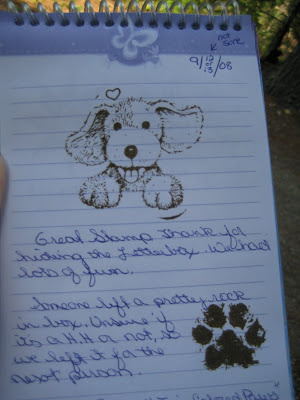 not
sure
9/12
or
13/08
Great Stamp. Thank for
hiding the Letterbox. We had
lots of fun.
Someone left a pretty rock
in box. Unsure if
it's a H.H or not, so
we left it for the
next person.